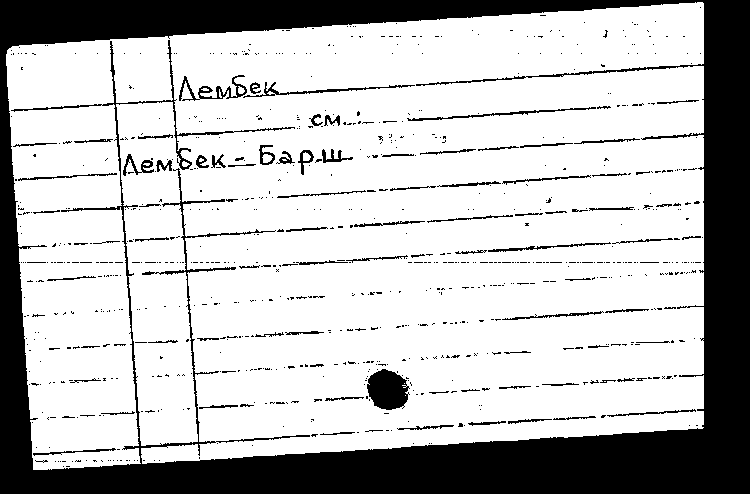 Лембек
см.:
Лембек - Барш